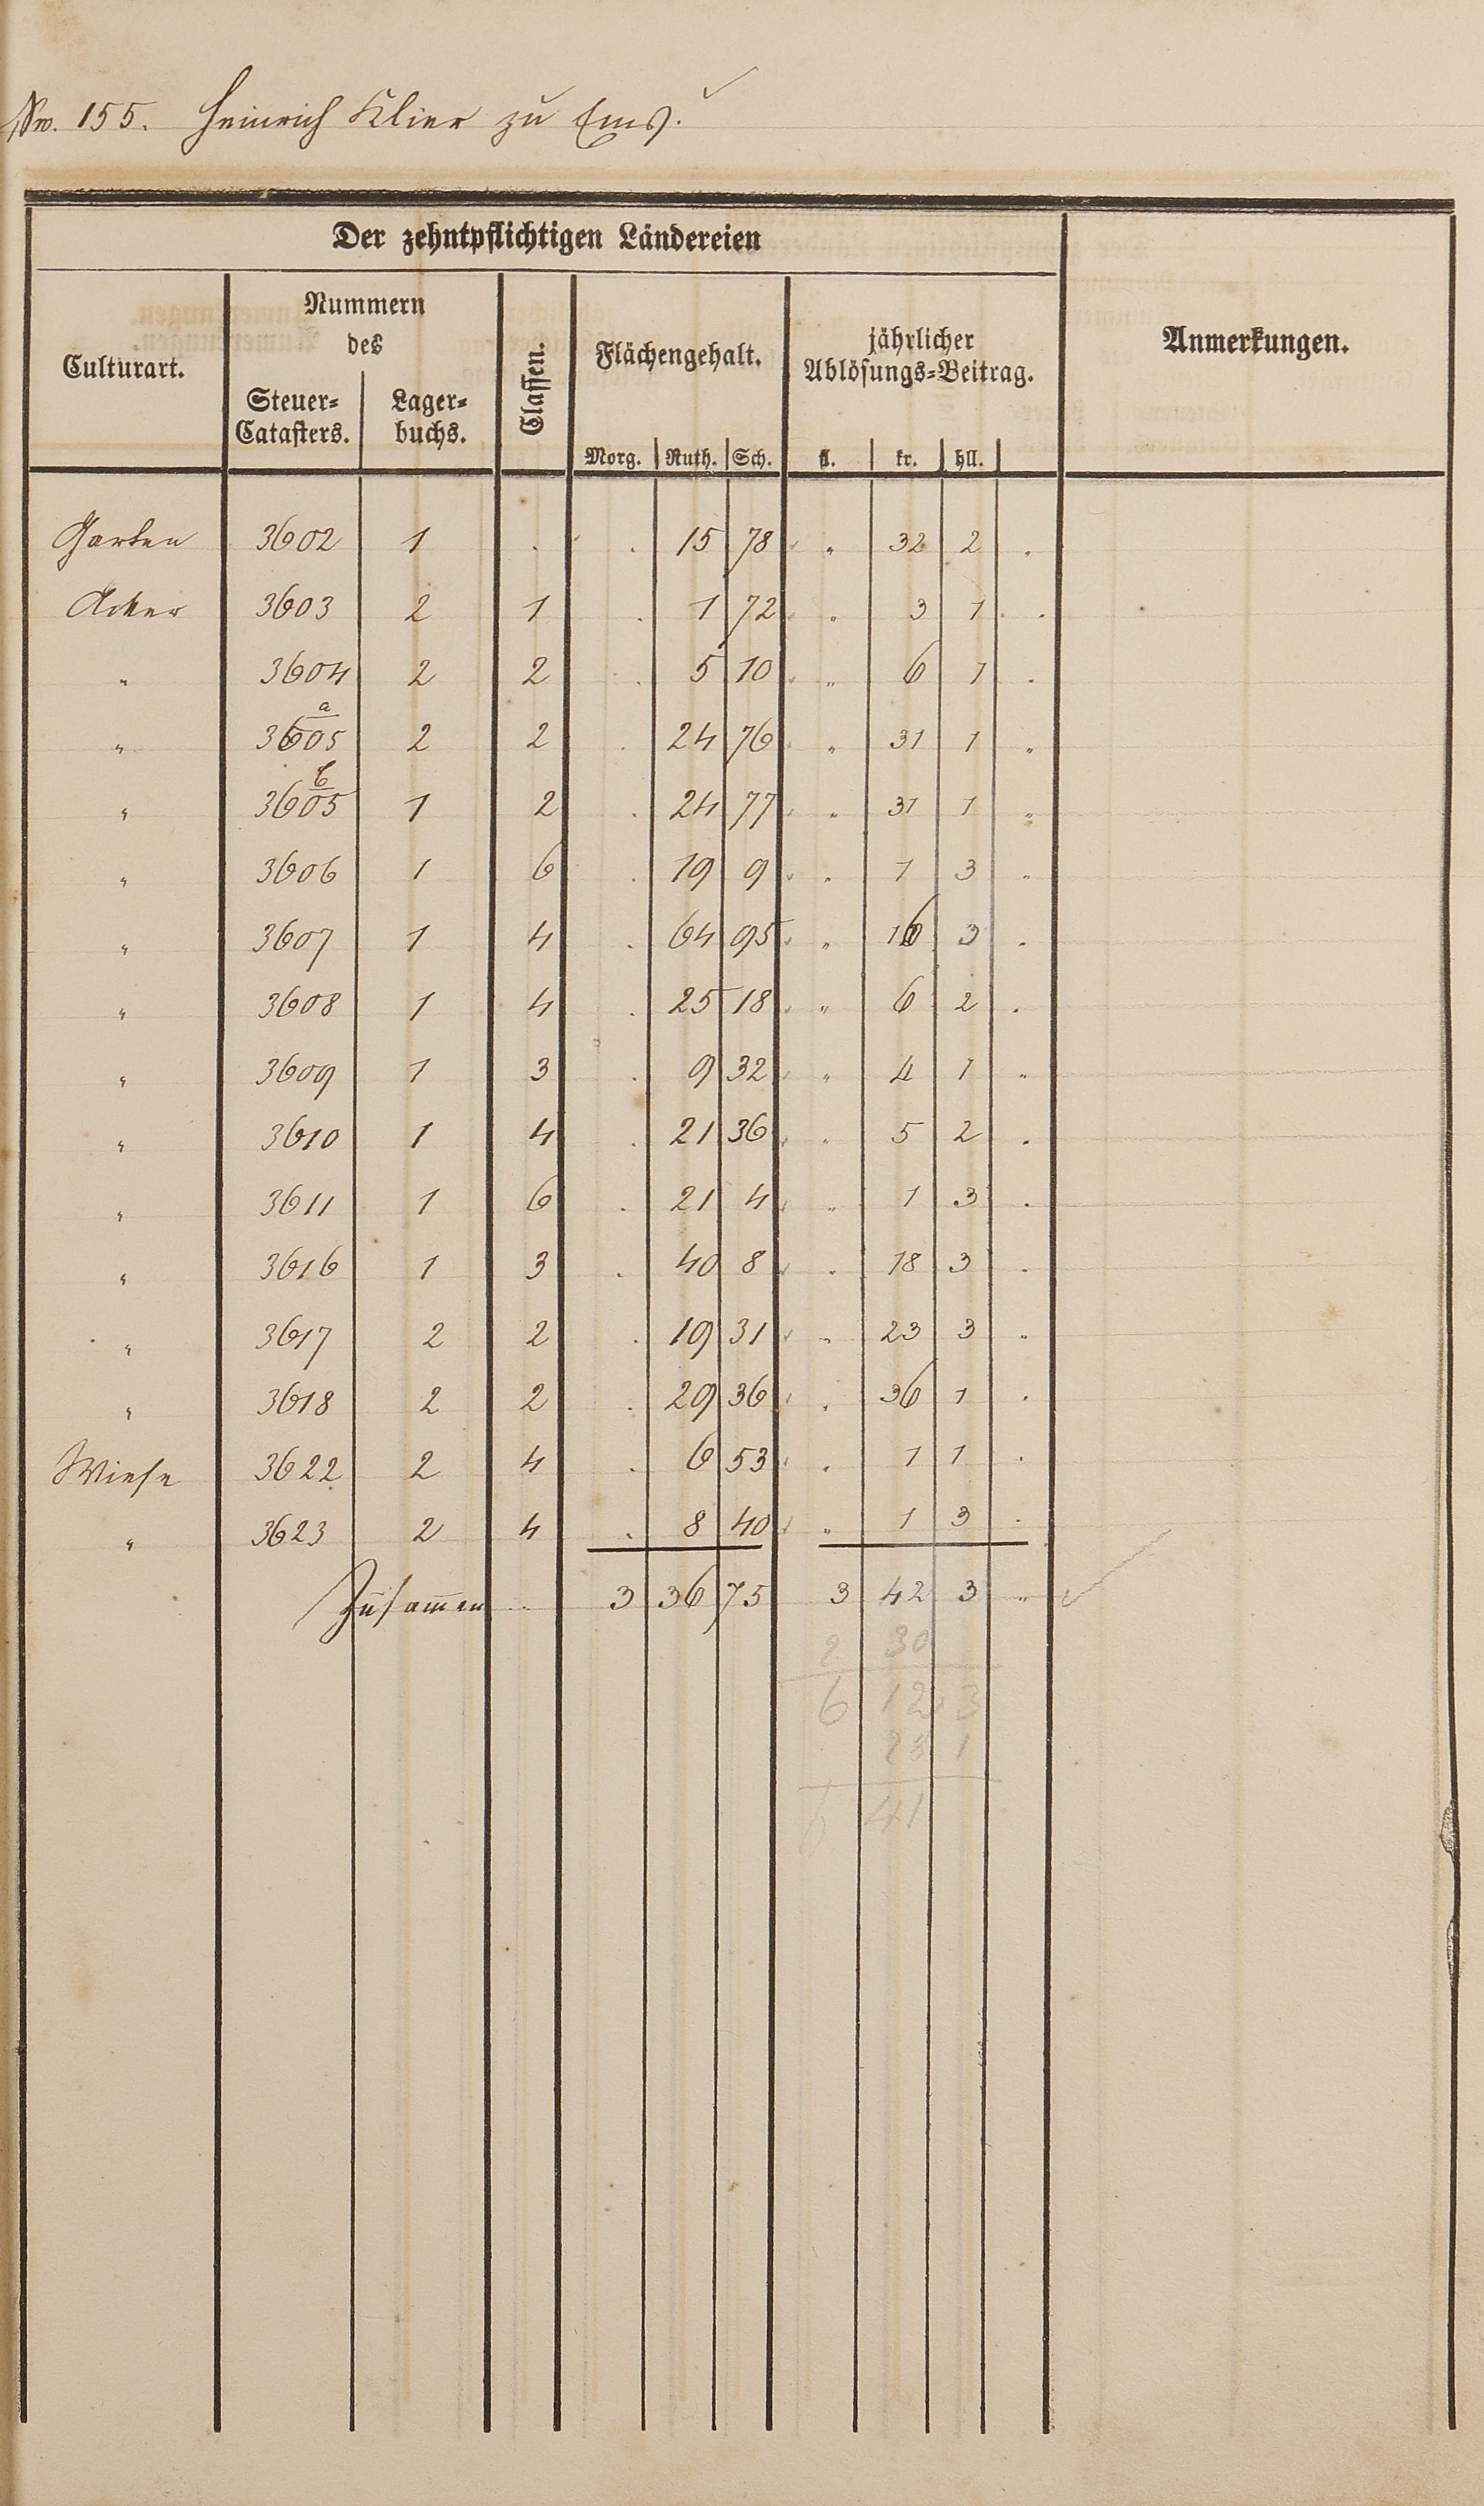 No. 155. Heinrich Klier zu Ems.
Der zehntpflichtigen Ländereien
Culturart. Nummern des Steuer=Catasters. Lager=buchs. Classen. Flächengehalt. jährlicher Ablösungs=Beitrag. Anmerkungen.
Morg. Ruth. Sch. fl. kr. hll.
Garten 3602 1 . . 15 78 " 32 2 .
Acker 3603 2 1 . 1 72 " 3 1 .
" 3604 2 2 . 5 10 " 6 1 .
" 3605 a 2 2 . 24 76 " 31 1 "
" 3605 b 1 2 . 24 77 " 31 1 "
" 3606 1 6 . 19 9 " 1 3 "
" 3607 1 4 . 64 95 " 16 3 .
" 3608 1 4 . 25 18 " 6 2 .
" 3609 1 3 . 9 32 " 4 1 "
" 3610 1 4 . 21 36 " 5 2 .
" 3611 1 6 . 21 4 " 1 3 .
" 3616 1 3 . 40 8 " 18 3 .
" 3617 2 2 . 19 31 " 23 3 "
" 3618 2 2 . 29 36 " 36 1 .
Wiese 3622 2 4 . 6 53 " 1 1 .
" 3623 2 4 . 8 40 " 1 3 .
Zusam̅en 3 36 75 3 42 3 "
2 30
6 12 3
28 1
6 41